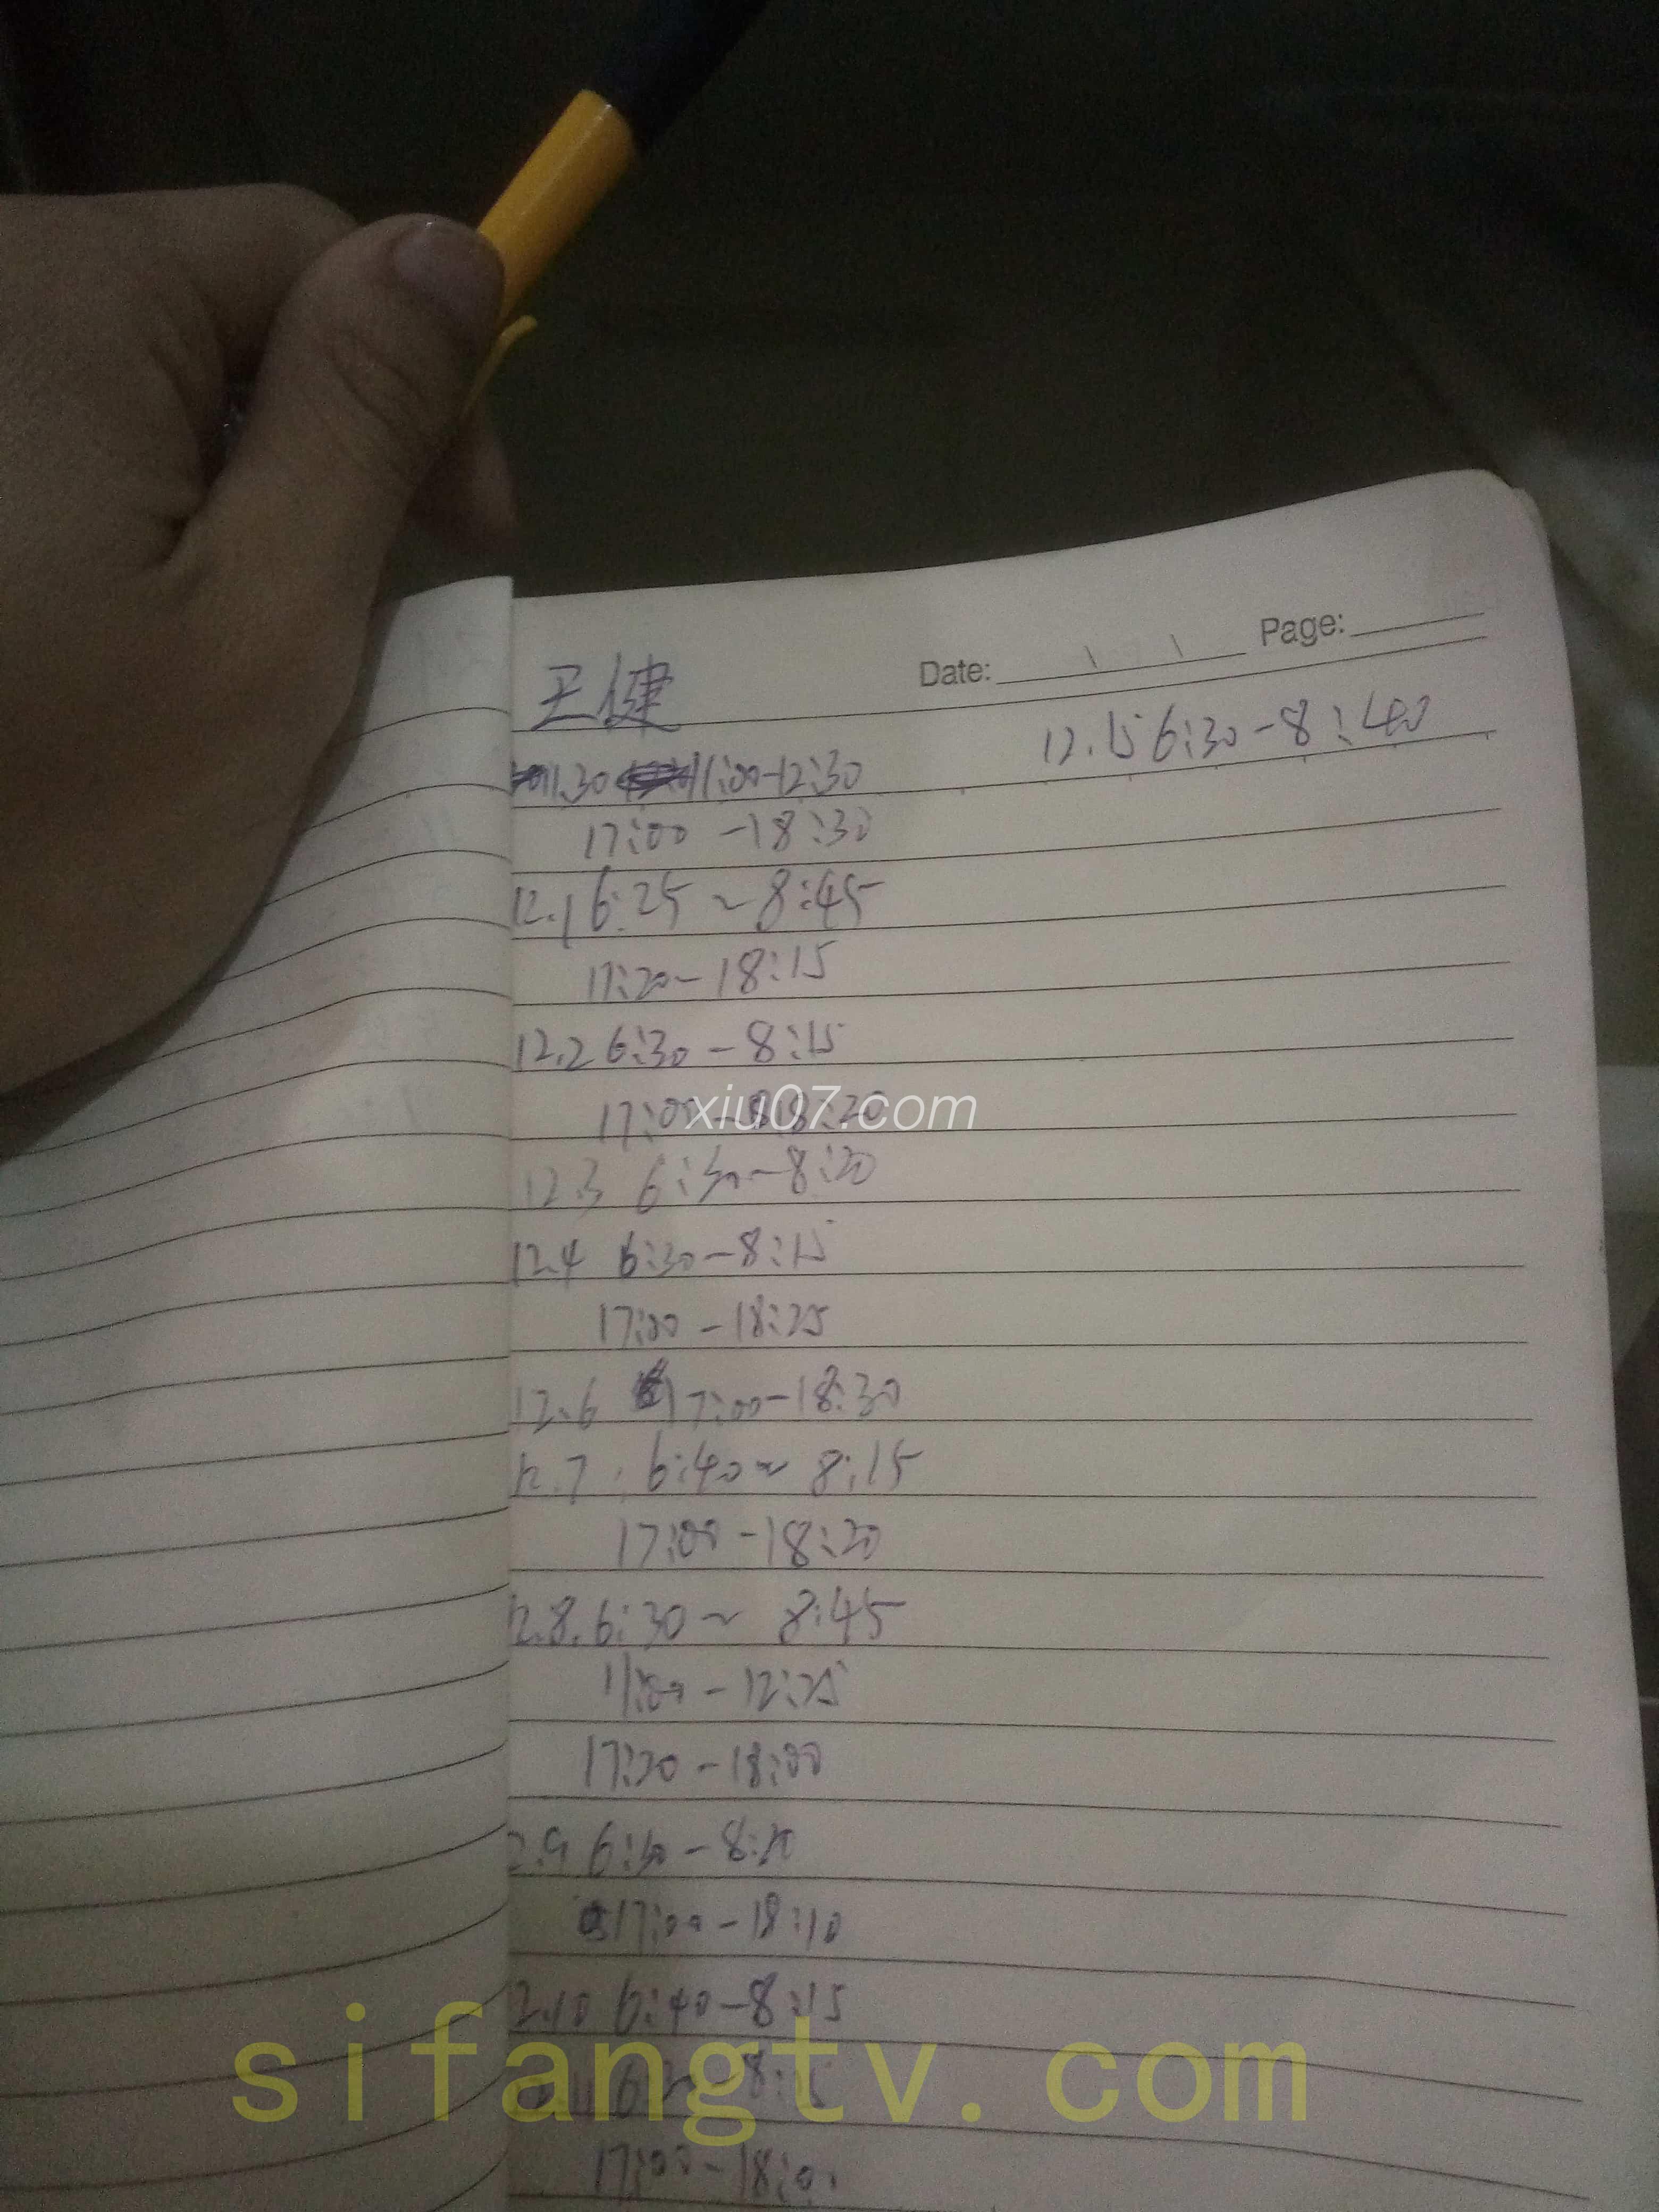 Date: Page:
王健
12.15 6:30-8:40
11.30 11:00-12:30
17:00-18:30
12.1 6:25~8:45
17:20-18:15
12.2 6:30-8:15
17:00-18:20
xiu07.com
12.3 6:30-8:20
12.4 6:30-8:15
17:00-18:25
12.6 17:00-18:30
12.7. 6:40~8:15
17:00-18:20
12.8. 6:30~8:45
11:00-12:25
17:30-18:00
2.9 6:30-8:20
17:00-18:10
2.10 6:40-8:15
sifangtv.com
8:15
17:00-18:0